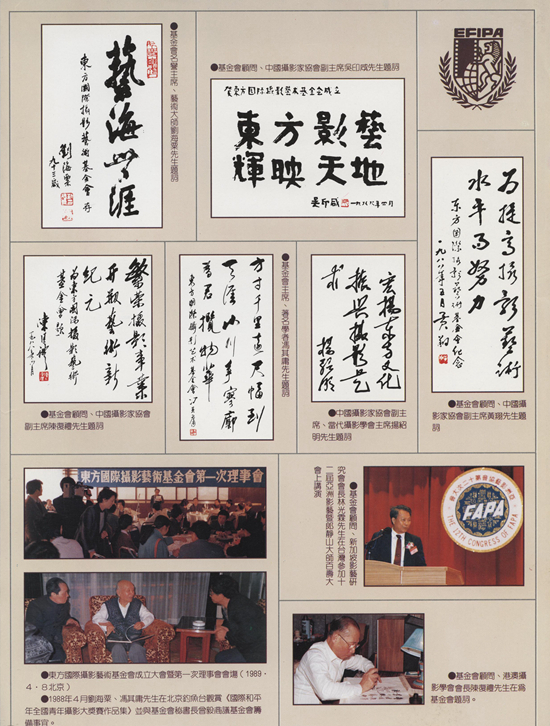 ●基金會名譽主席、藝術大師劉海粟先生題詞
藝海無涯
東方國際攝影藝術基金會存
劉海粟
九十三歲
●基金會顧問、中國攝影家協會副主席吳印咸先生題詞
賀東方國際攝影藝術基金會成立
東方影藝
輝映天地
吳印咸
一九八八年四月
EFIPA
為提高攝影藝術
水平而努力
东方国际攝影藝術基金會纪念
一九八八年五月 黄翔
●基金會顧問、中國攝
影家協會副主席黃翔先生題詞
繁荣攝影事業
開啟藝術新
紀元
為東方國際攝影藝術
基金會題
●基金會顧問、中國攝影家協會
副主席陳復禮先生題詞
方寸千里遠尺幅到
天涯
●基金會主席、著名學者馮其庸先生題詞
宏揚東方文化
振興攝影藝
術
楊紹明
●中國攝影家協會副主
席、當代攝影學會主席楊紹
明先生題詞
東方國際攝影藝術基金會第一次理事會
●東方國際攝影藝術基金會成立大會暨第一次理事會會場(1989・
4・8北京)
●1988年4月劉海粟、馮其庸先生在北京釣魚台觀賞《國際和平
年全國青年攝影大獎賽作品集》並與基金會秘書長曾毅商議基金會籌
備事宜。
●基金會顧問、新加坡影藝研
究會會長林光霖先生在台灣參加十
二屆亞洲影藝暨郎靜山大師百壽大
會上講演
FAPA
THE 12TH CONGRESS OF FAPA
●基金會顧問、港澳攝
影學會會長陳復禮先生在為
基金會題詞。